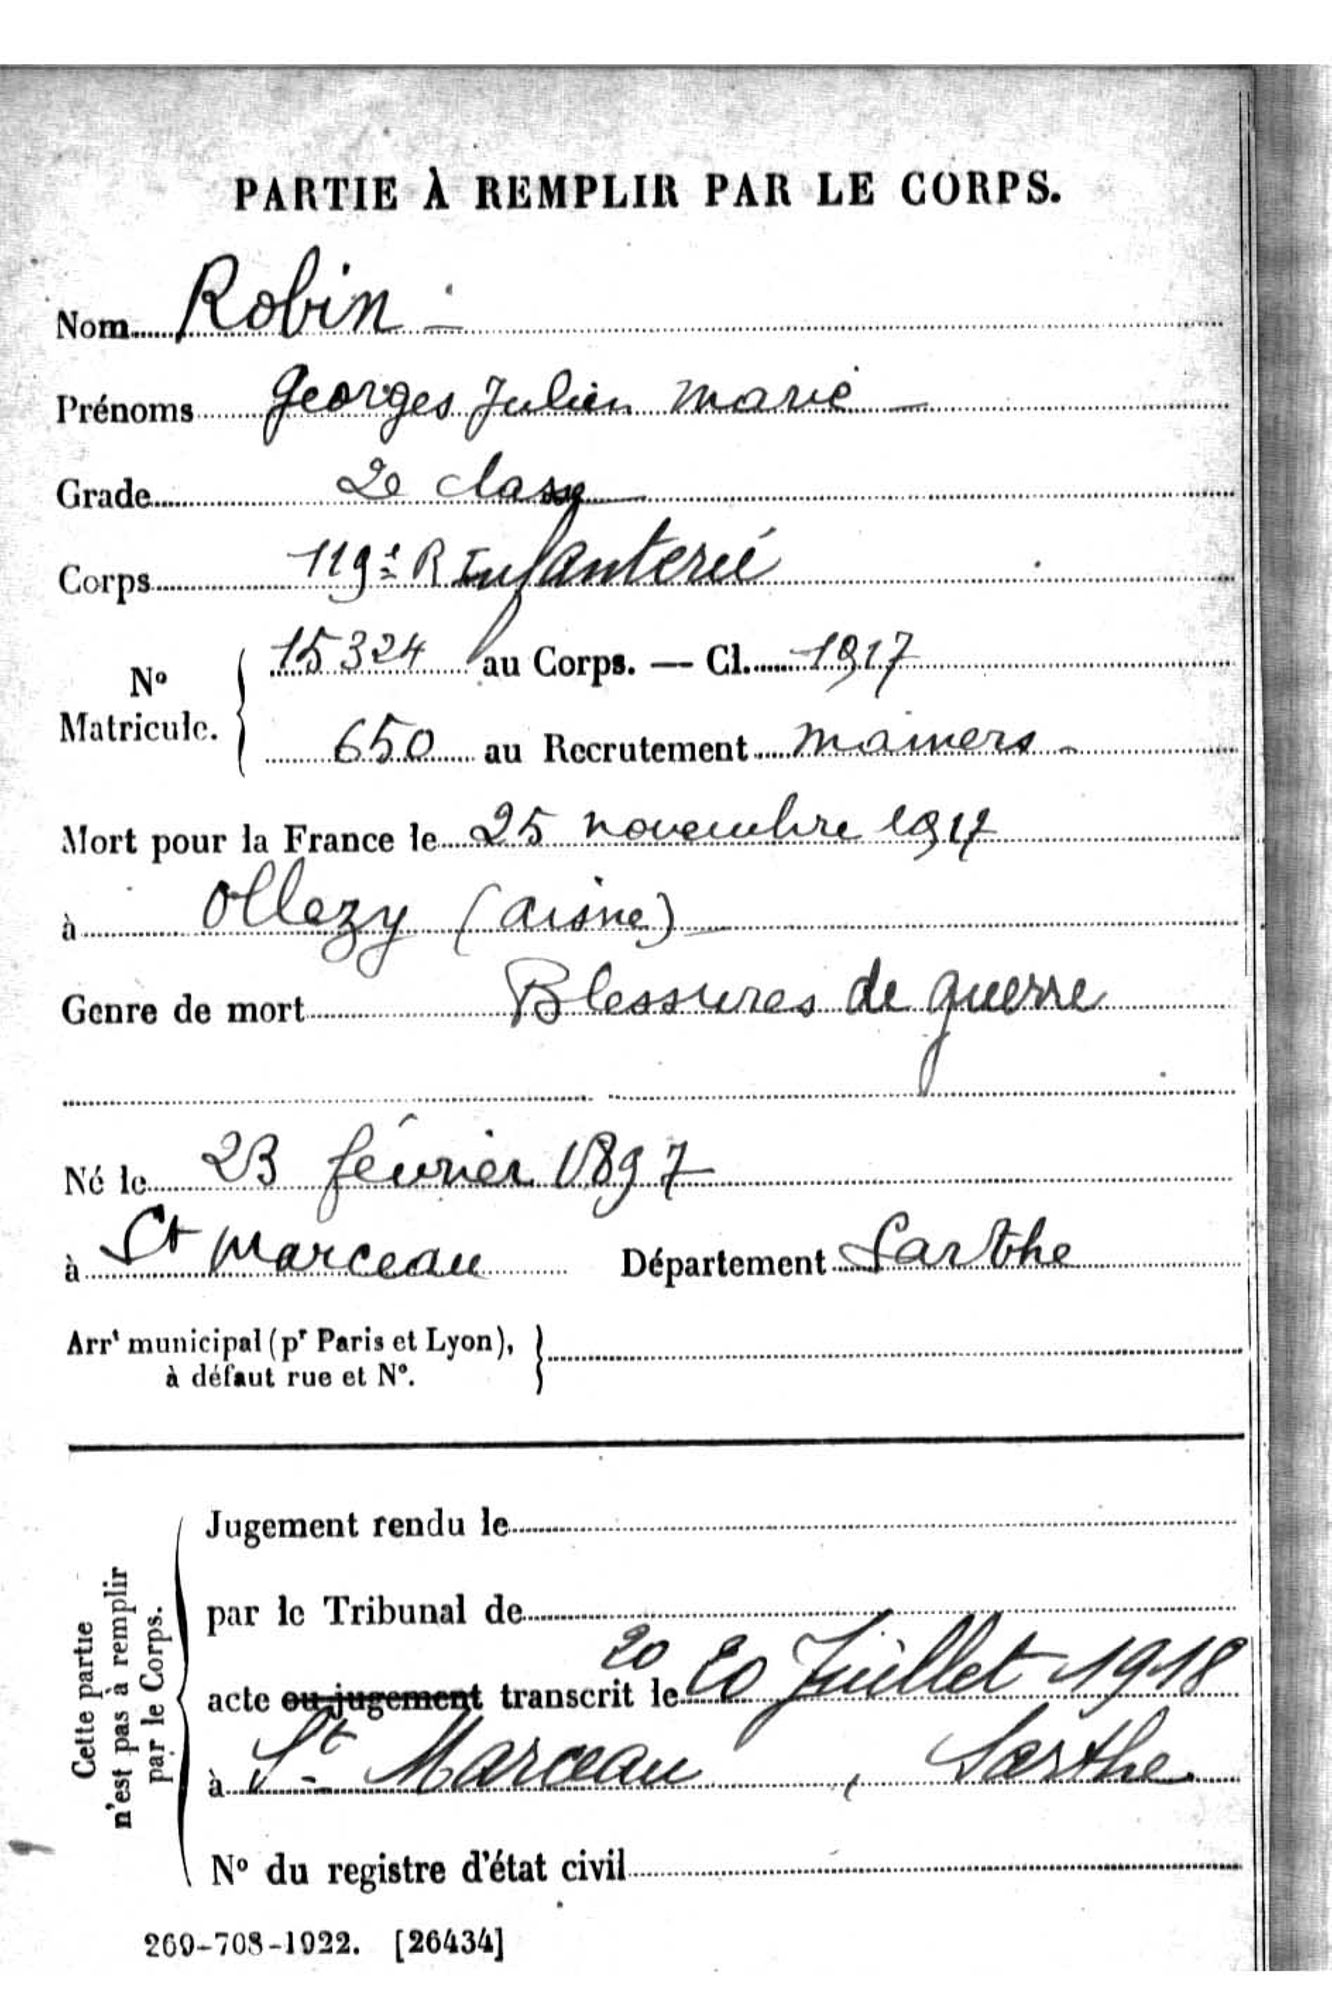 PARTIE À REMPLIR PAR LE CORPS.
Nom Robin
Prénoms Georges Julien Marie
Grade 2e classe
Corps 119e R Infanterie
No Matricule. { 15324 au Corps. — Cl. 1917
650 au Recrutement Mamers
Mort pour la France le 25 novembre 1917
à Ollezy (Aisne)
Genre de mort Blessures de guerre
Né le 23 février 1897
à St Marceau Département Sarthe
Arrt municipal (pr Paris et Lyon), }
à défaut rue et No.
Cette partie
n'est pas à remplir
par le Corps.
Jugement rendu le
par le Tribunal de
20
acte ou jugement transcrit le 20 Juillet 1918
à St Marceau, Sarthe
No du registre d'état civil
269-708-1922. [26434]